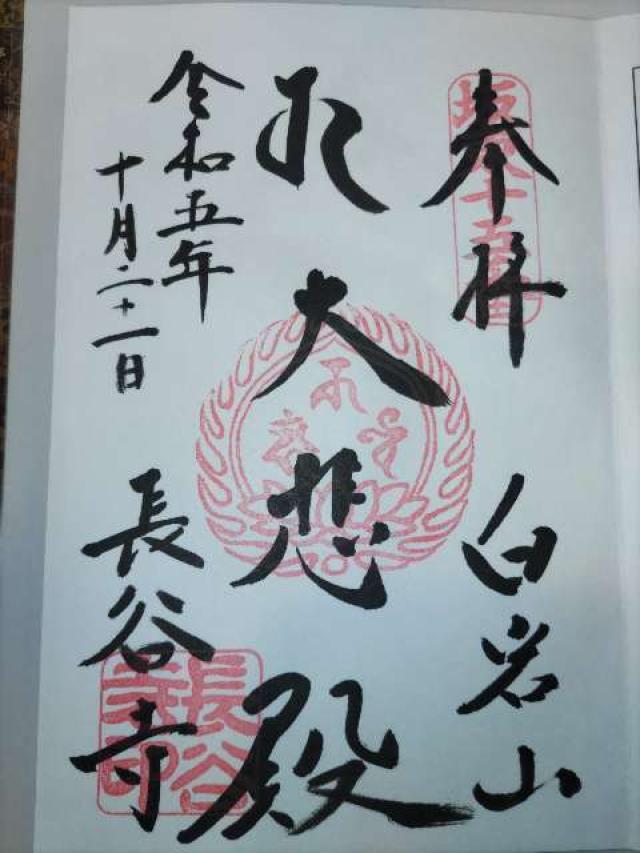 奉拝
坂東十五番
白岩山
大悲殿
令和五年
十月二十一日
長谷寺
長谷寺印